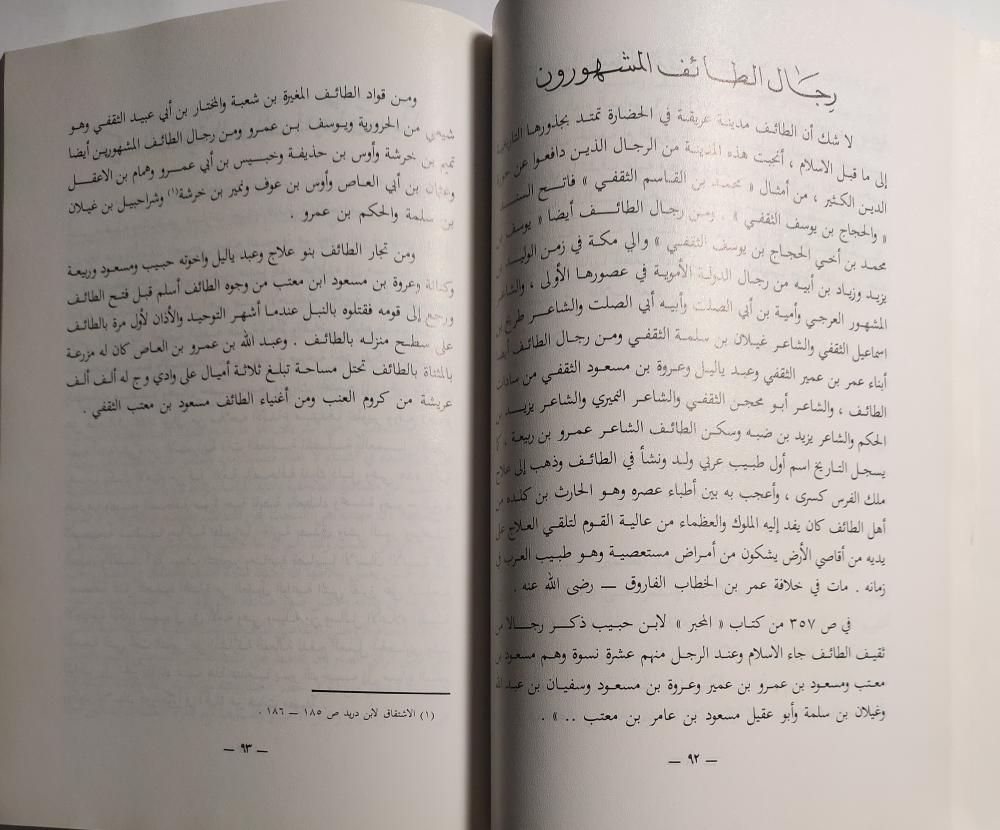 رجال الطائف المشهورون
لا شك أن الطائف مدينة عريقة في الحضارة تمتد بجذورها
إلى ما قبل الاسلام ، أنجبت هذه المدينة من الرجال الذين دافعوا عن
الدين الكثير ، من أمثال « محمد بن القاسم الثقفي » فاتح السند
« والحجاج بن يوسف الثقفي » . ومن رجال الطائف أيضا « يوسف بن
محمد بن أخي الحجاج بن يوسف الثقفي » والي مكة في زمن الوليد
يزيد وزياد بن أبيه من رجال الدولة الأموية في عصورها الأولى ، والشاعر
المشهور العرجي وأمية بن أبي الصلت وأبيه أبي الصلت والشاعر طريح بن
اسماعيل الثقفي والشاعر غيلان بن سلمة الثقفي ومن رجال الطائف أيضا
أبناء عمر بن عمير الثقفي وعبد ياليل وعروة بن مسعود الثقفي من سادات
الطائف ، والشاعر أبو محجن الثقفي والشاعر النميري والشاعر يزيد بن
الحكم والشاعر يزيد بن ضبه وسكن الطائف الشاعر عمرو بن ربيعة ،
يسجل التاريخ اسم أول طبيب عربي ولد ونشأ في الطائف وذهب إلى علاج
ملك الفرس كسرى ، وأعجب به بين أطباء عصره وهو الحارث بن كلده من
أهل الطائف كان يفد إليه الملوك والعظماء من عالية القوم لتلقي العلاج على
يديه من أقاصي الأرض يشكون من أمراض مستعصية وهو طبيب العرب في
زمانه . مات في خلافة عمر بن الخطاب الفاروق — رضى الله عنه .
في ص ٣٥٧ من كتاب « المحبر » لابن حبيب ذكر رجالا من
ثقيف الطائف جاء الاسلام وعند الرجل منهم عشرة نسوة وهم مسعود بن
معتب ومسعود بن عمرو بن عمير وعروة بن مسعود وسفيان بن عبد الله
وغيلان بن سلمة وأبو عقيل مسعود بن عامر بن معتب .. » .
— ٩٢ —
ومن قواد الطائف المغيرة بن شعبة والمختار بن أبي عبيد الثقفي وهو
شيعي من الحرورية ويوسف بن عمرو ومن رجال الطائف المشهورين أيضا
تميم بن خرشة وأوس بن حذيفة وخبيس بن أبي عمرو وهمام بن الاعقل
وعثمان بن أبي العاص وأوس بن عوف ونمير بن خرشة(١) وشراحبيل بن غيلان
بن سلمة والحكم بن عمرو .
ومن تجار الطائف بنو علاج وعبد ياليل واخوته حبيب ومسعود وربيعة
وكنانة وعروة بن مسعود ابن معتب من وجوه الطائف أسلم قبل فتح الطائف
ورجع إلى قومه فقتلوه بالنبل عندما أشهر التوحيد والأذان لأول مرة بالطائف
على سطح منزله بالطائف . وعبد الله بن عمرو بن العاص كان له مزرعة
بالمثناة بالطائف تحتل مساحة تبلغ ثلاثة أميال على وادي وج له ألف ألف
عريشة من كروم العنب ومن أغنياء الطائف مسعود بن معتب الثقفي .
(١) الاشتقاق لابن دريد ص ١٨٥ — ١٨٦ .
— ٩٣ —